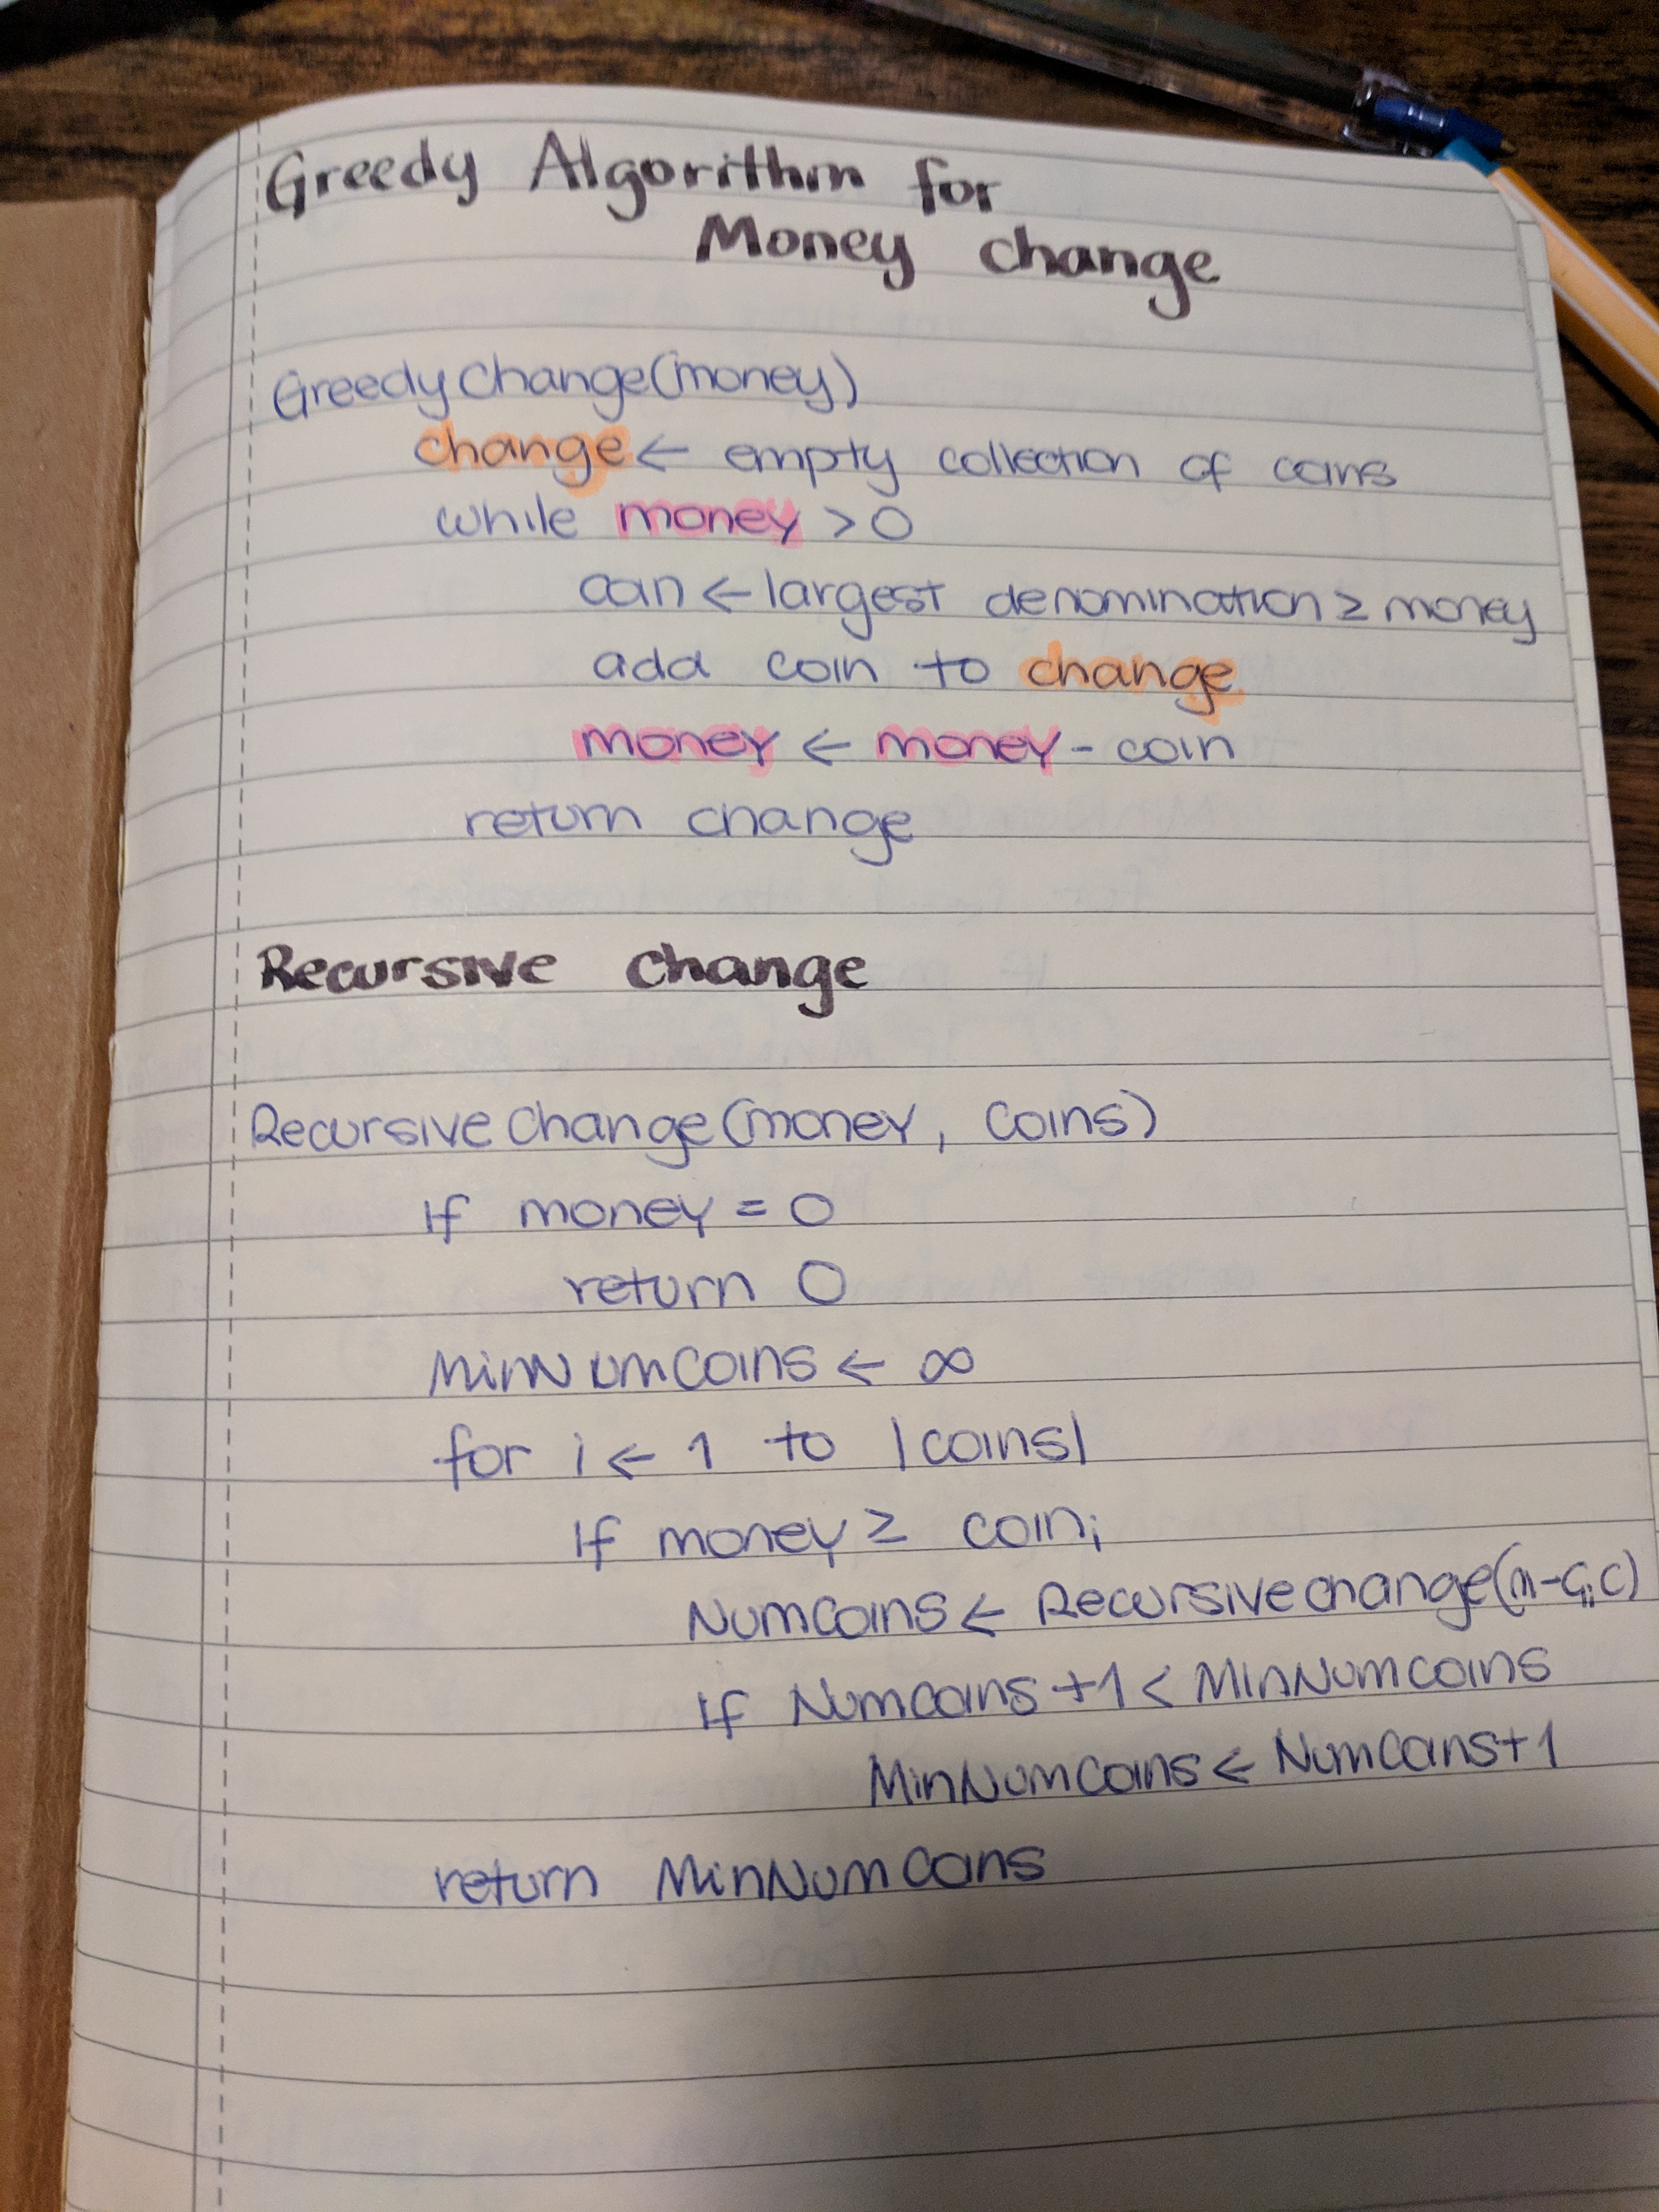 Greedy Algorithm for
Money change
GreedyChange(money)
change ← empty collection of coins
while money > 0
coin ← largest denomination ≥ money
add coin to change
money ← money - coin
return change
Recursive Change
RecursiveChange(money, coins)
if money = 0
return 0
MinNumCoins ← ∞
for i ← 1 to |coins|
if money ≥ coinᵢ
NumCoins ← RecursiveChange(m-cᵢ,c)
if NumCoins +1 < MinNumCoins
MinNumCoins ← NumCoins+1
return MinNumCoins